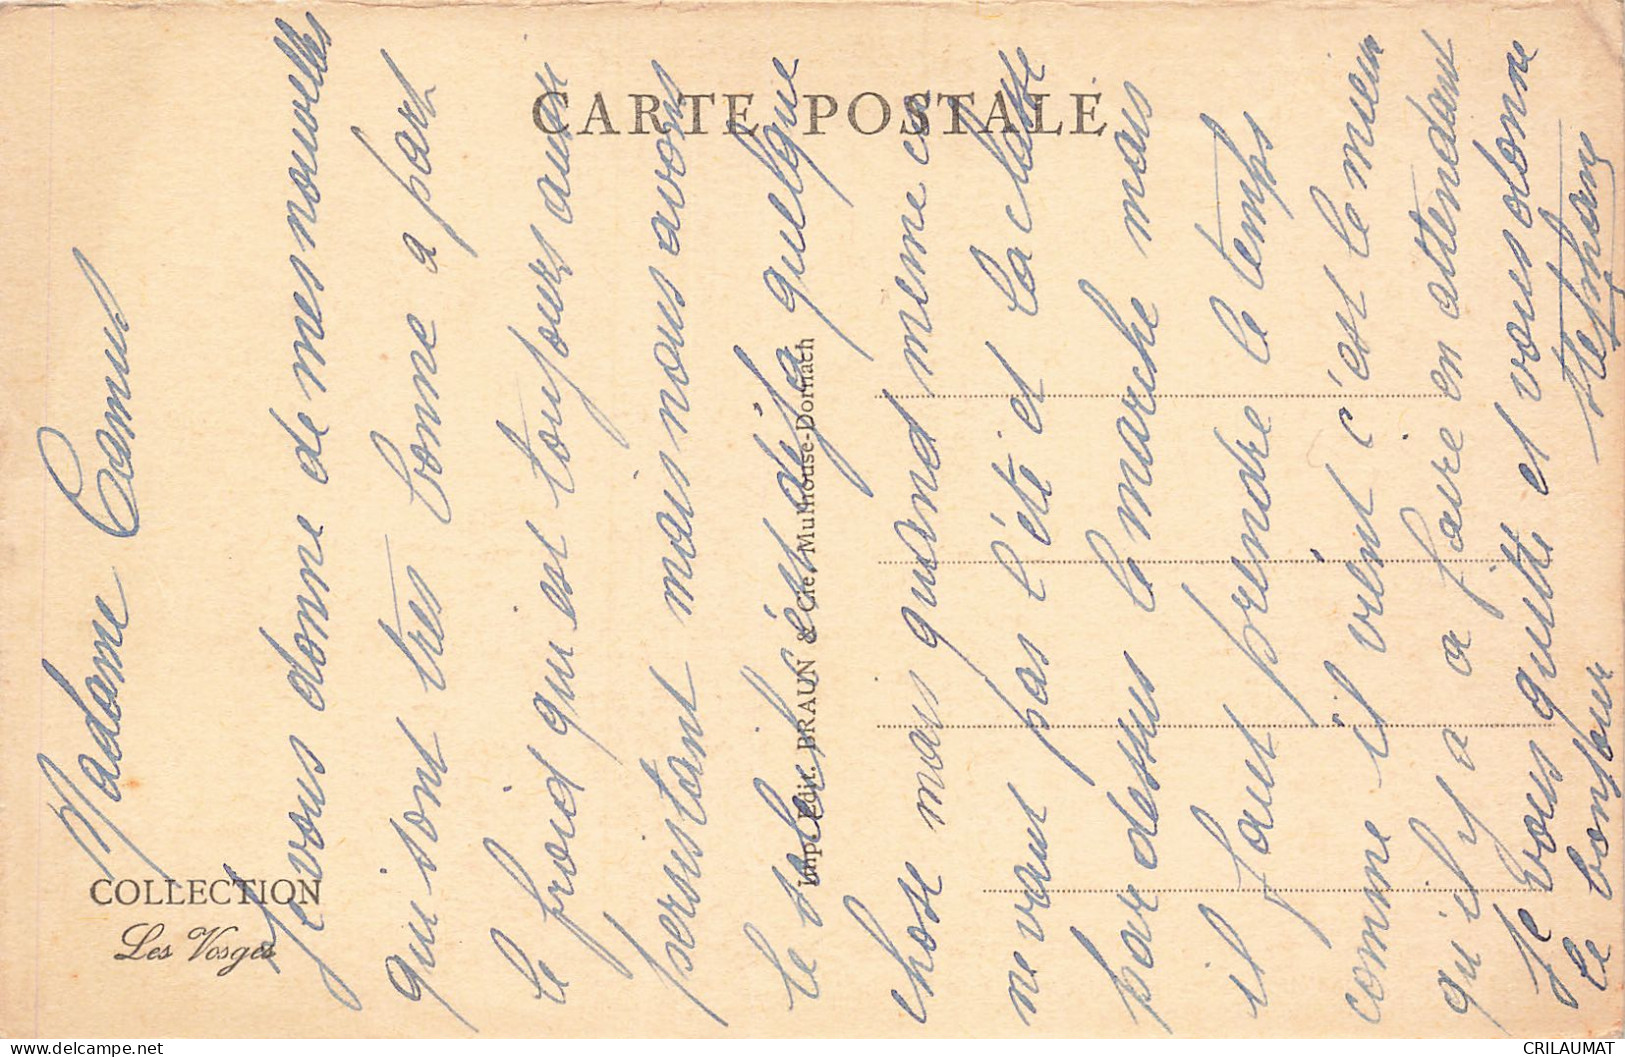 CARTE POSTALE
COLLECTION
Les Vosges
Imp. Edit. BRAUN & Cie Mulhouse-Dornach
Madame Camut
Je vous donne de mes nouvelles
qui sont tres bonne a part
le froid qui est toujours aussi
persistant mais nous avont
le soleil c'est déja quelque
chose mais quand meme ce
ne vaut pas l'été et la class
par dessus le marche mais
il faut prendre le temps
comme il vient c'est le mieux
qu'il y a a faire en attendant
Je vous quitte et vous donne
le bonjour Stephany
delcampe.net
CRILAUMAT